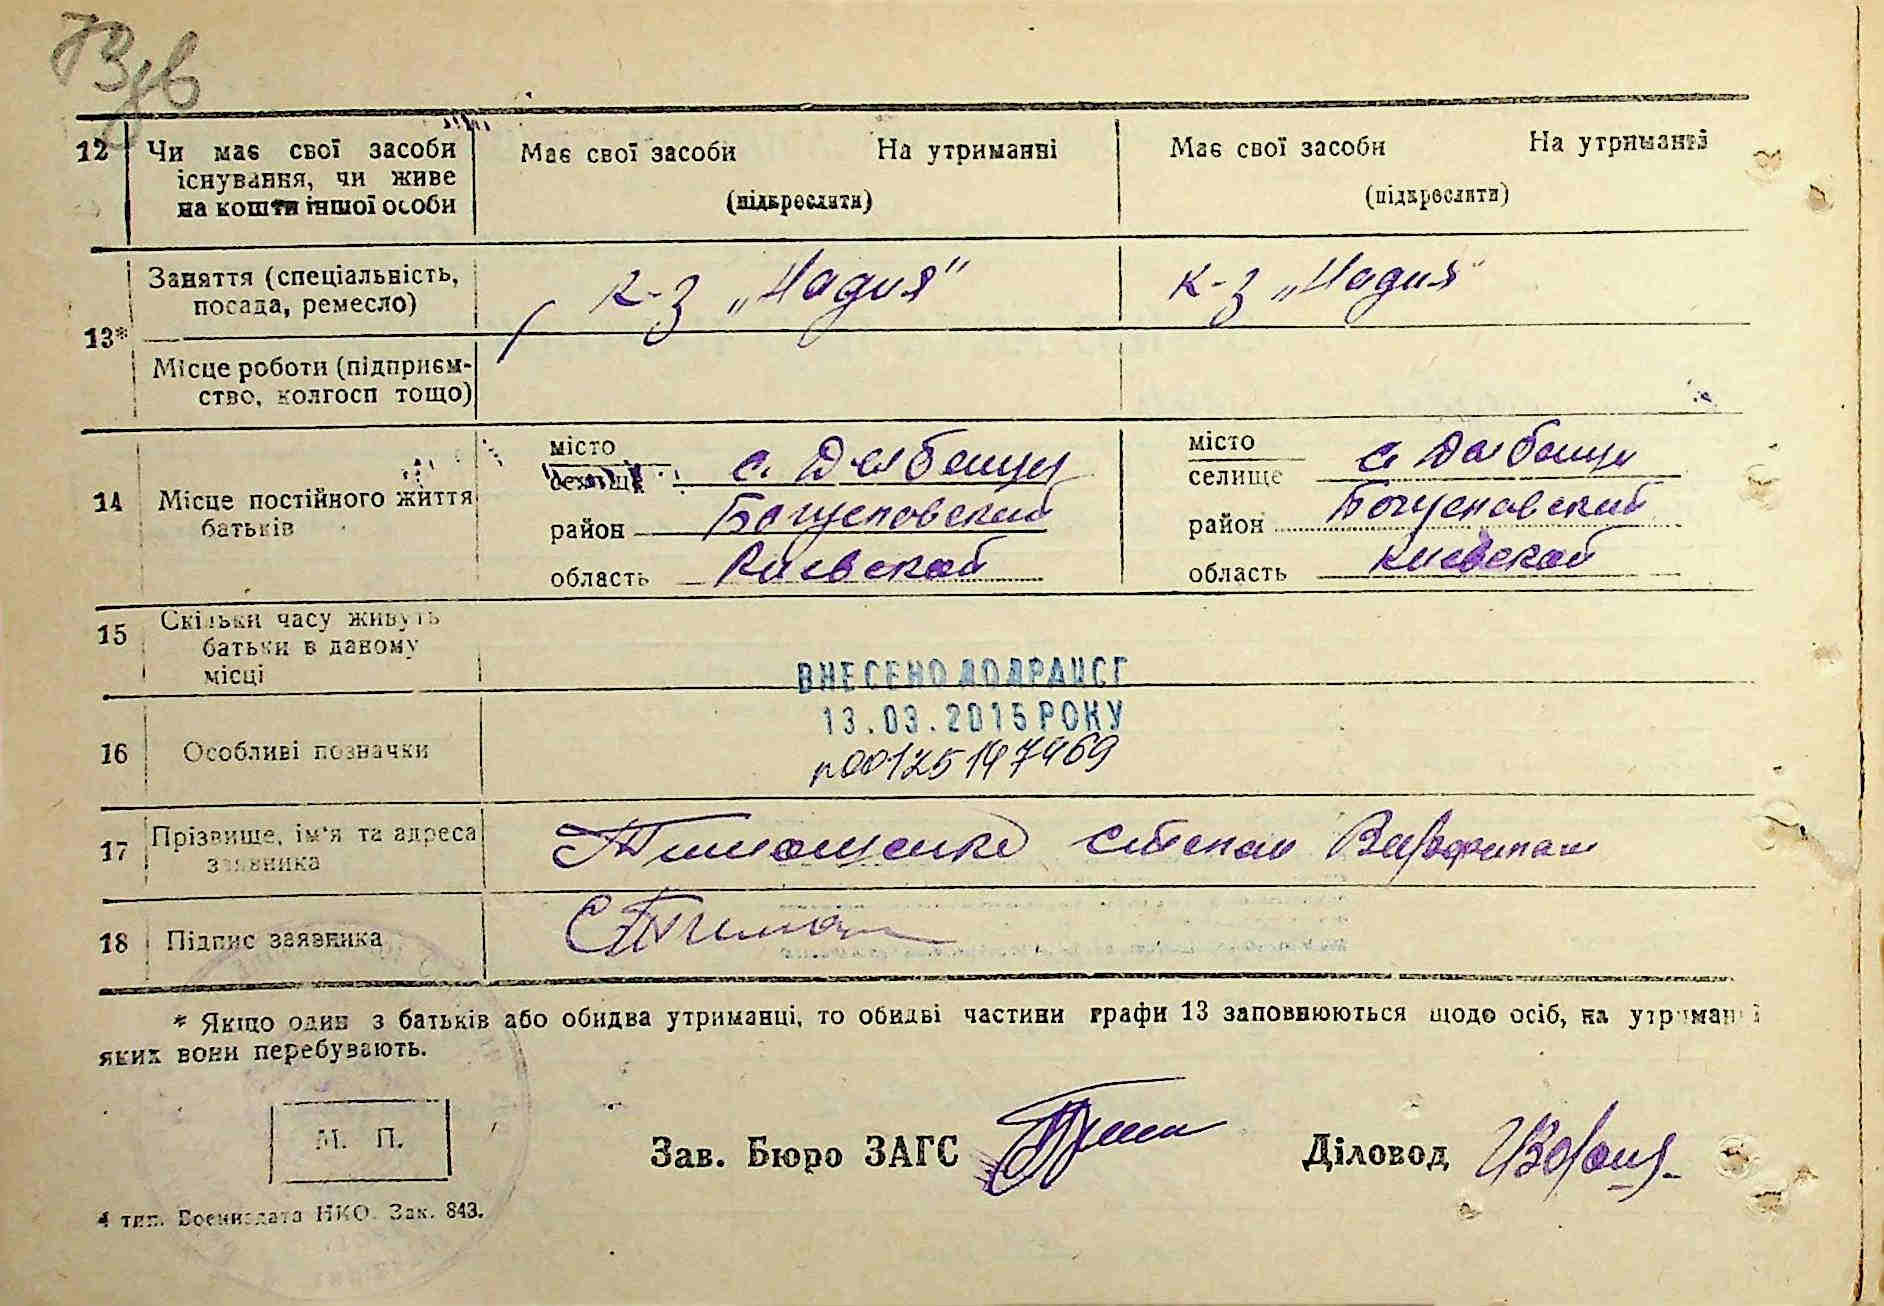 12 Чи має свої засоби існування, чи живе на кошти іншої особи
Має свої засоби На утриманні
(підкреслити)
Має свої засоби На утриманні
(підкреслити)
13* Заняття (спеціальність, посада, ремесло)
к-з „Надия"
к-з „Надия"
Місце роботи (підприємство, колгосп тощо)
14 Місце постійного життя батьків
місто
селище с. Дыбенцы
район Богуславский
область Киевской
місто
селище с. Дыбенцы
район Богуславский
область Киевской
15 Скільки часу живуть батьки в даному місці
ВНЕСЕНО ДО ДРАЦСГ
13.03.2015 РОКУ
16 Особливі позначки
№00125147469
17 Прізвище, ім'я та адреса заявника
Тимошенко Степан
18 Підпис заявника
* Якщо один з батьків або обидва утриманці, то обидві частини графи 13 заповнюються щодо осіб, на утриманні
яких вони перебувають.
М. П.
Зав. Бюро ЗАГС
Діловод
4 тип. Воениздата НКО. Зак. 843.